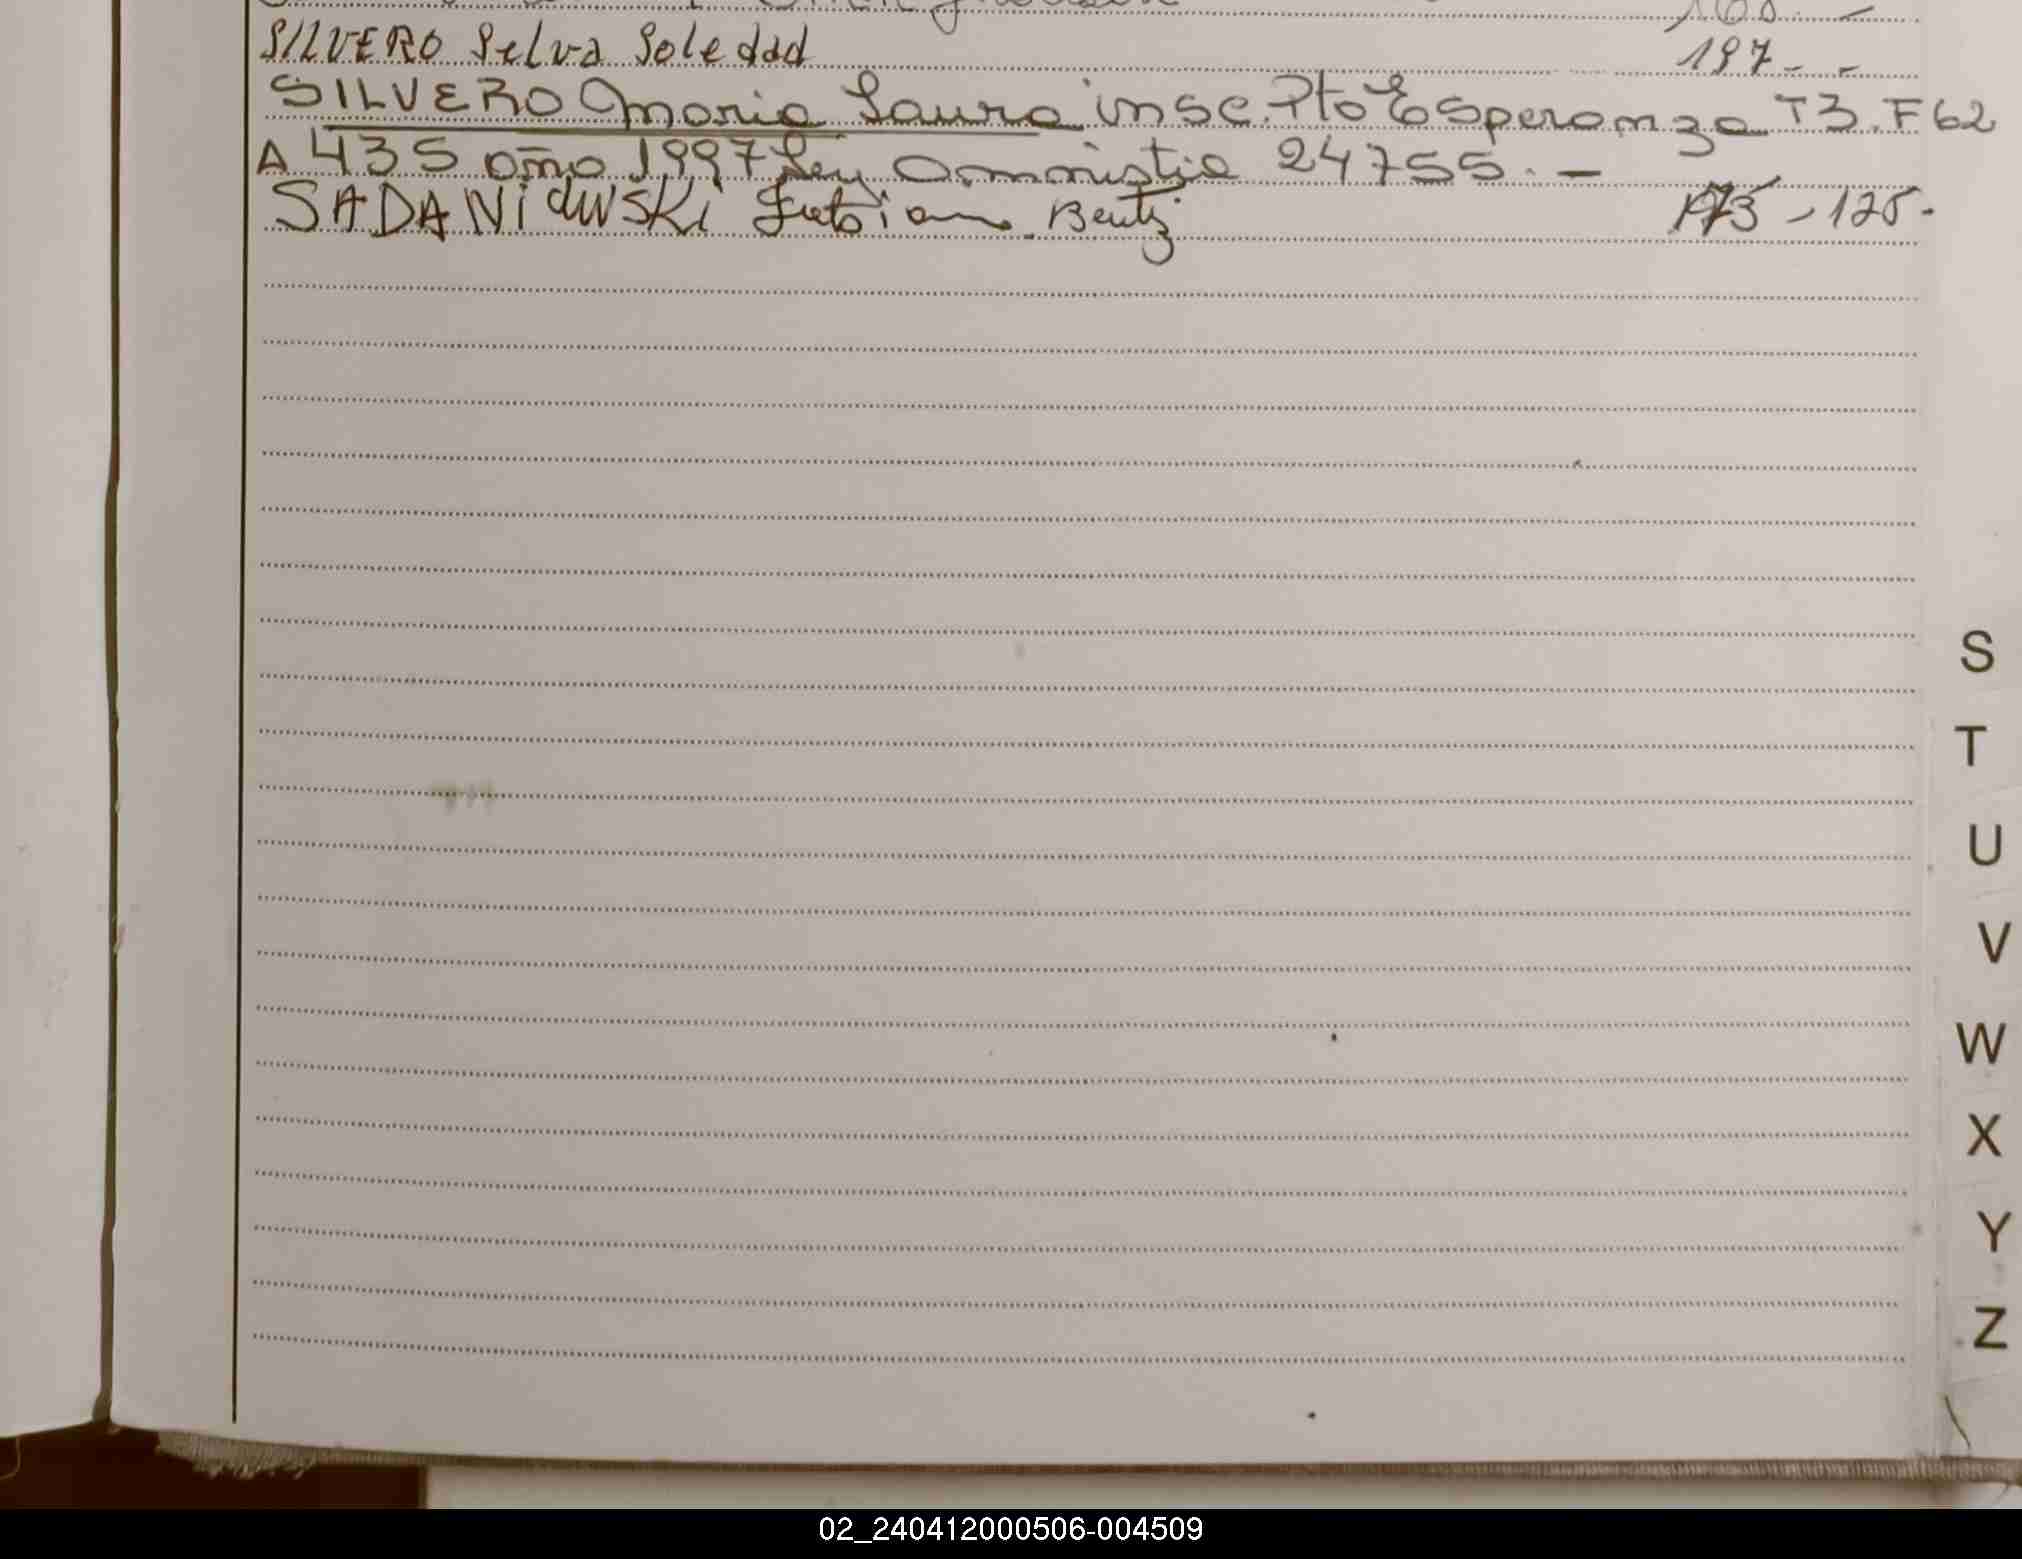 160 -
SILVERO Selva Soledad 197 - -
SILVERO Maria Laura insc. Pto Esperanza T3. F62
A 435 año 1997 Ley Amnistia 24755. -
SADANIOWSKI Fabiana Beatriz 173 - 125 -
S
T
U
V
W
X
Y
Z
02_240412000506-004509